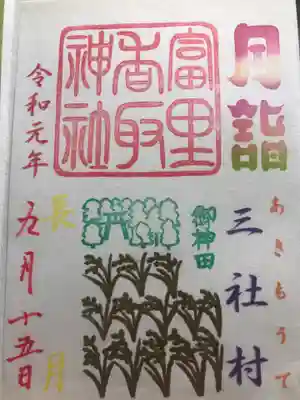 月詣
あきもうて
三社村
御神田
富里
香取
神社
長月
令和元年
九月十五日